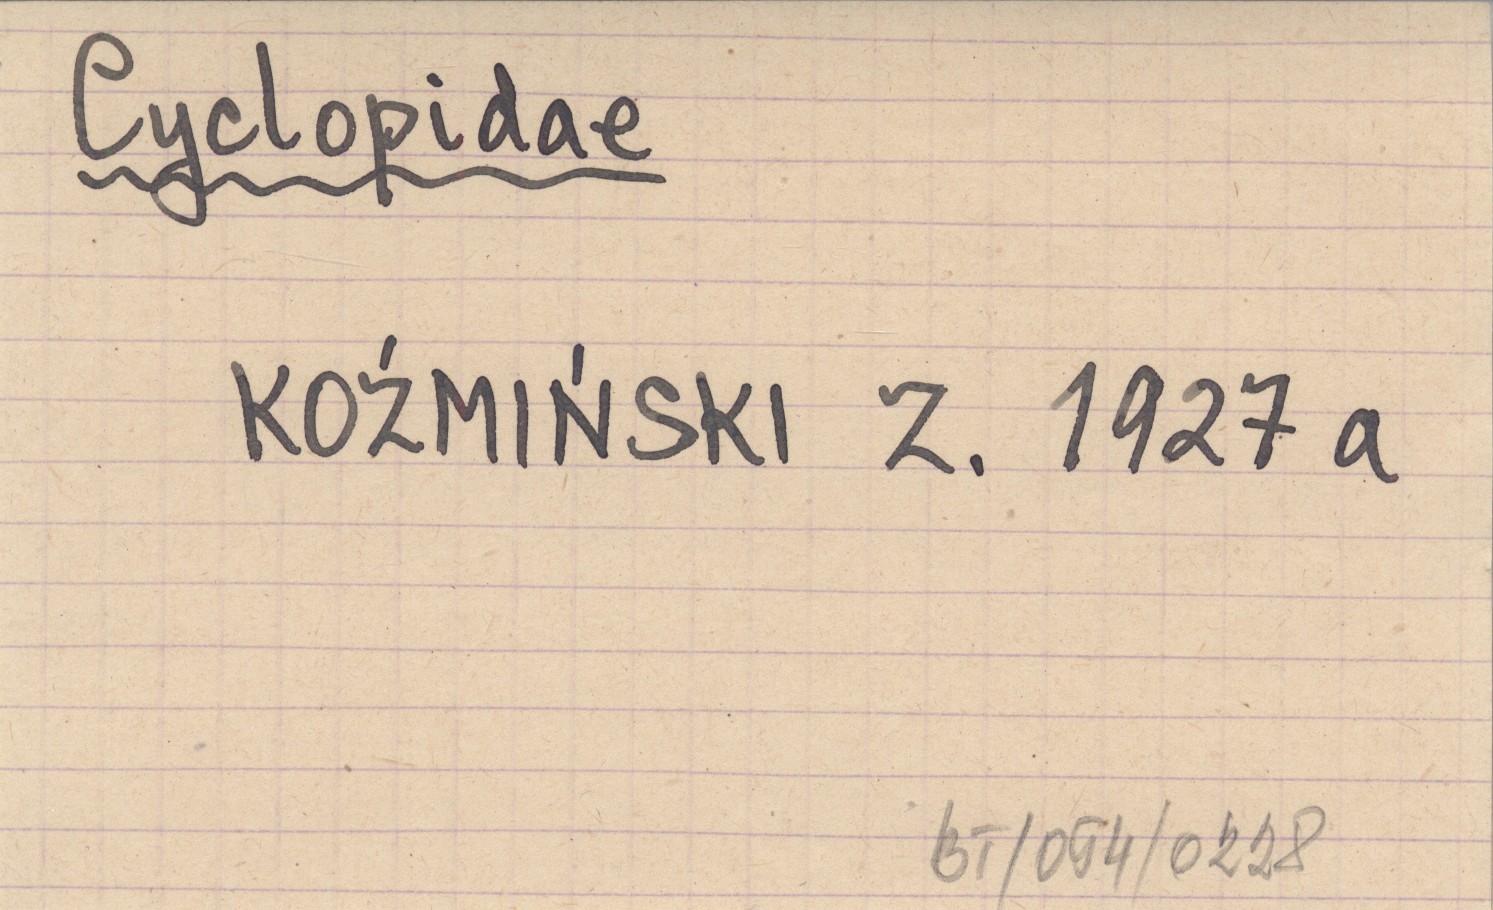 Cyclopidae
KOŹMIŃSKI Z. 1927 a
BT/054/0228